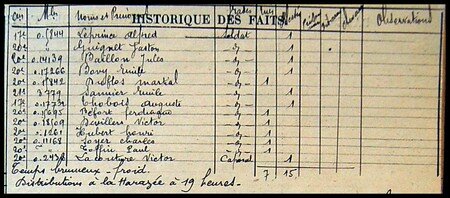 Mle Noms et Prénoms Grades Tués Blessés Observations
HISTORIQUE DES FAITS
17e 0.5944 Leprince Alfred Soldat 1
20e " Guéguet Gaston -d- 1
20e 0.14139 Paillon Jules -d- 1
20e 0.17266 Bovy Emile -d- 1
20e 0.15842 martial -d- 1
21e 3779 Sannier Emile -d- 1
17e 0.17731 Thobois auguste -d- 1
20e 0.15695 Béfort ferdinand -d- 1
20e 0.18109 Devillers Victor -d- 1
20e 0.1261 Hubert henri -d- 1
20e 0.11168 Soyer Charles -d- 1
20e " Toffin Paul -d- 1
20e 0.2478 La couture Victor Caporal 1
Temps brumeux - froid. 7 15
Distributions à la Harazée à 19 heures -